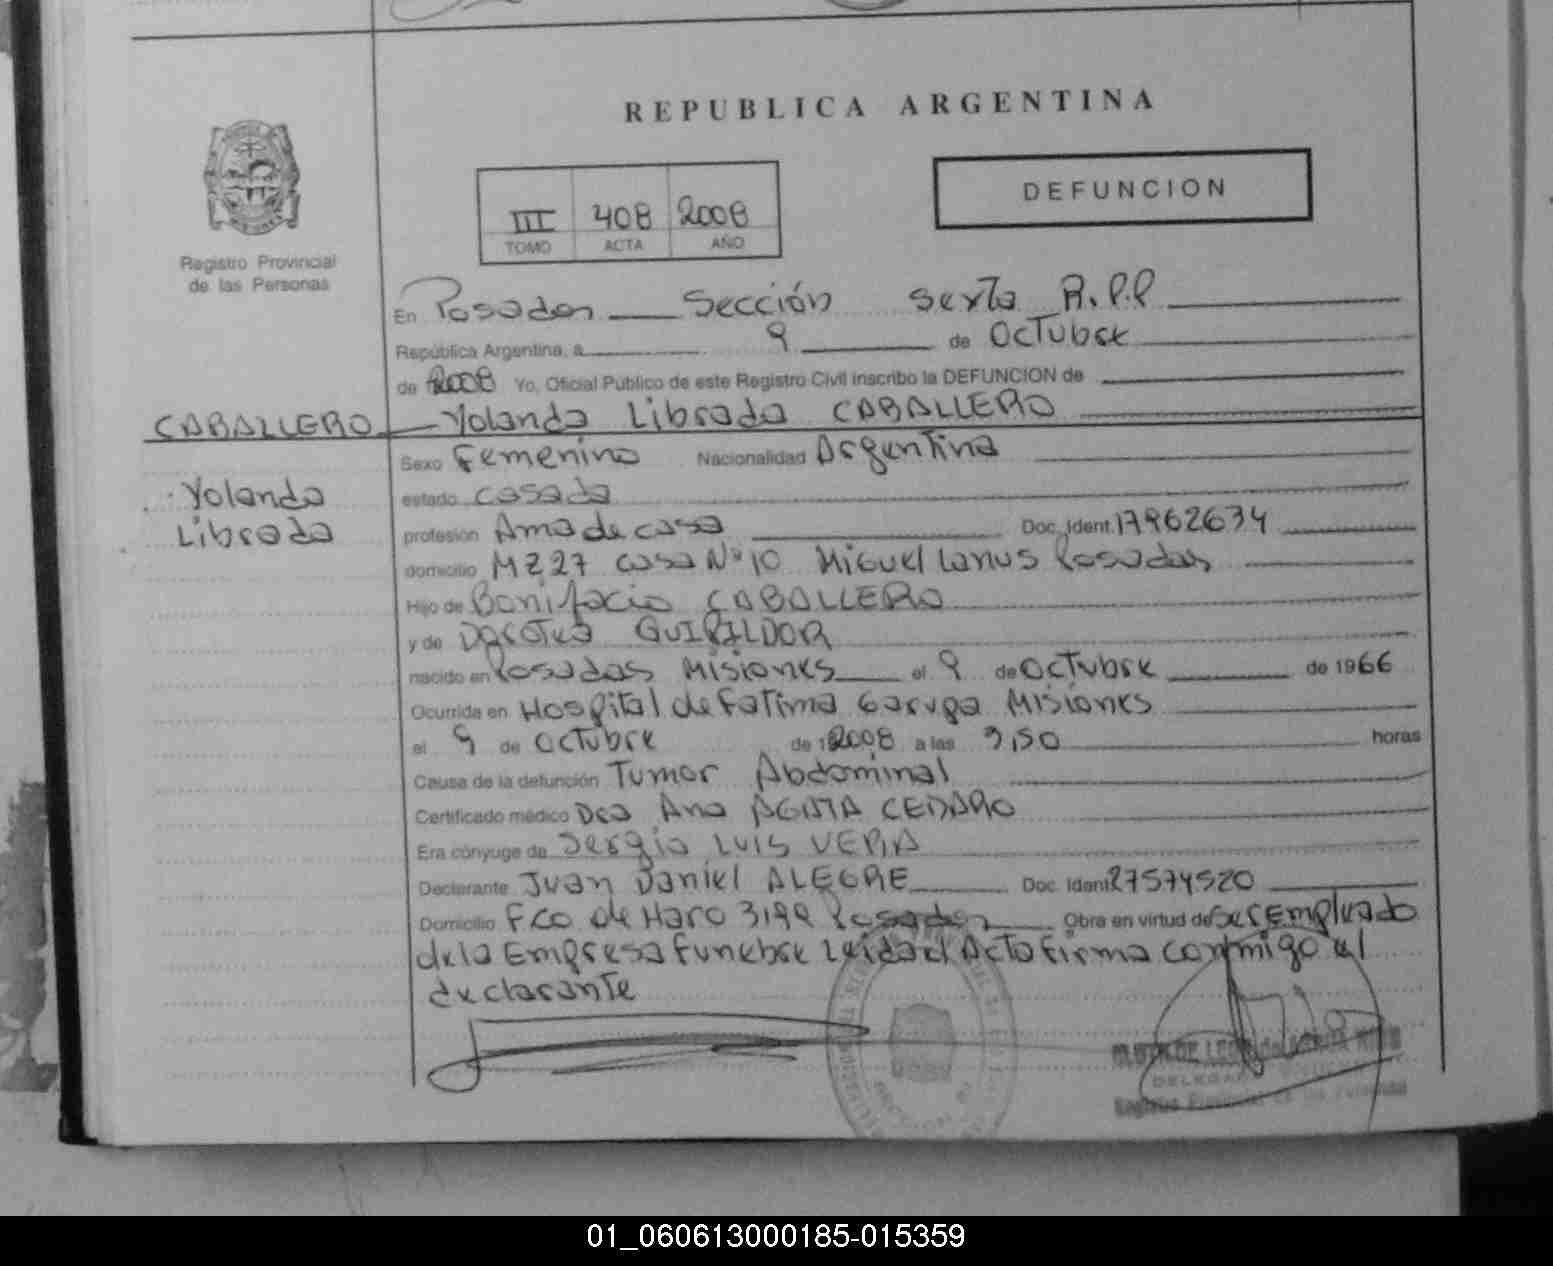 REPUBLICA ARGENTINA
DEFUNCION
III 408 2008
TOMO ACTA AÑO
Registro Provincial
de las Personas
En Posadas Sección Sexta R.P.P
República Argentina, a 9 de Octubre
de 2008 Yo, Oficial Público de este Registro Civil inscribo la DEFUNCION de
CABALLERO Yolanda Librada CABALLERO
Sexo Femenino Nacionalidad Argentina
Yolanda estado casada
Librada profesión Ama de casa Doc. Ident. 17962634
domicilio MZ 27 casa Nº 10 Miguel Lanus Posadas
Hijo de Bonifacio CABALLERO
y de Dorotea
nacido en Posadas Misiones el 9 de Octubre de 1966
Ocurrida en Hospital de Fatima Garupa Misiones
el 9 de Octubre de 2008 a las 3,50 horas
Causa de la defunción Tumor Abdominal
Certificado médico Dra Ana
Era cónyuge de Sergio LUIS VERA
Declarante Juan Daniel ALEGRE Doc. Ident 27574520
Domicilio Fco de Haro 3199 Posadas Obra en virtud de Ser Empleado
de la Empresa Funebre Leida el Acta firma conmigo el
declarante
01_060613000185-015359